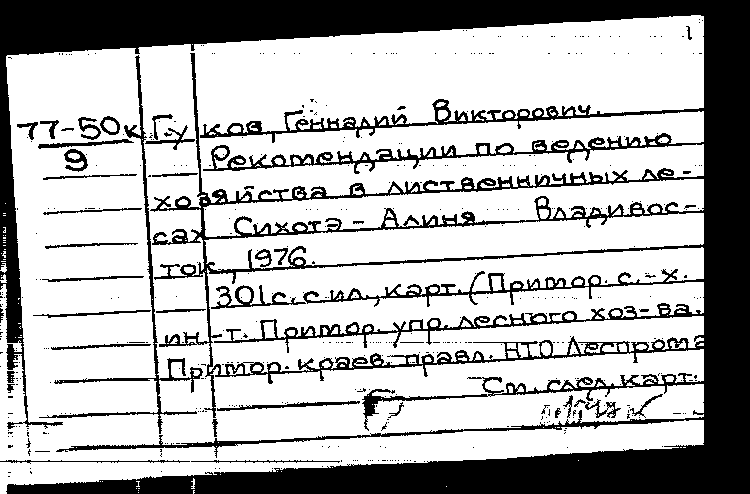 1
77-50к Гуков, Геннадий Викторович.
9 Рекомендации по ведению
хозяйства в лиственничных ле-
сах Сихотэ-Алиня. Владивос-
ток, 1976.
301с. с ил., карт. (Примор. с.-х.
ин-т. Примор. упр. лесного хоз-ва.
Примор. краев. правл. НТО Леспрома
См. след. карт.